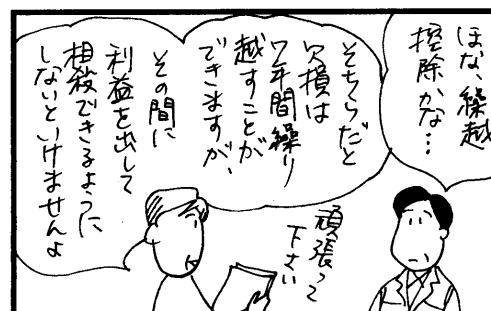 ほな、繰越
控除かな…
そちらだと
欠損は
7年間繰り
越すことが
できますが、
その間に
利益を出して
相殺できるように
しないといけませんよ
頑張って
下さい